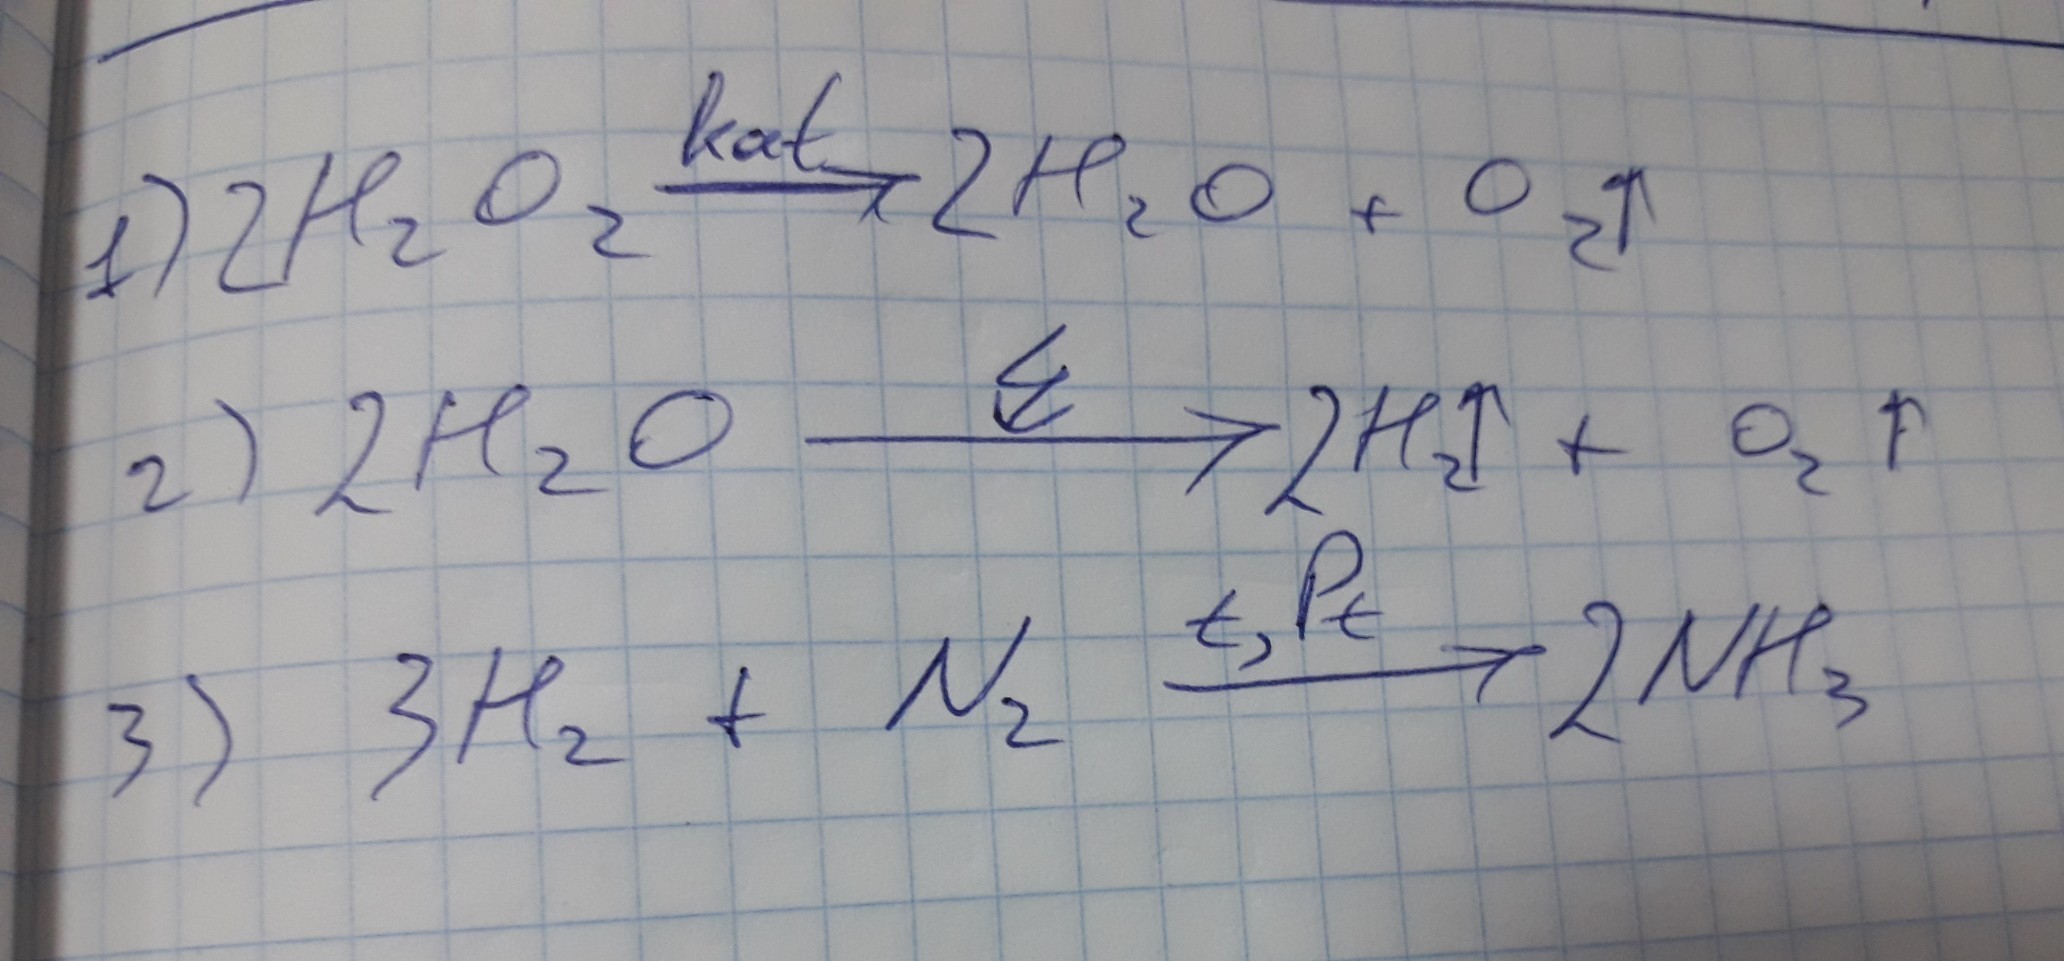 1) 2H₂O₂ kat→ 2H₂O + O₂↑
2) 2H₂O ↯→ 2H₂↑ + O₂↑
3) 3H₂ + N₂ t, Pt→ 2NH₃